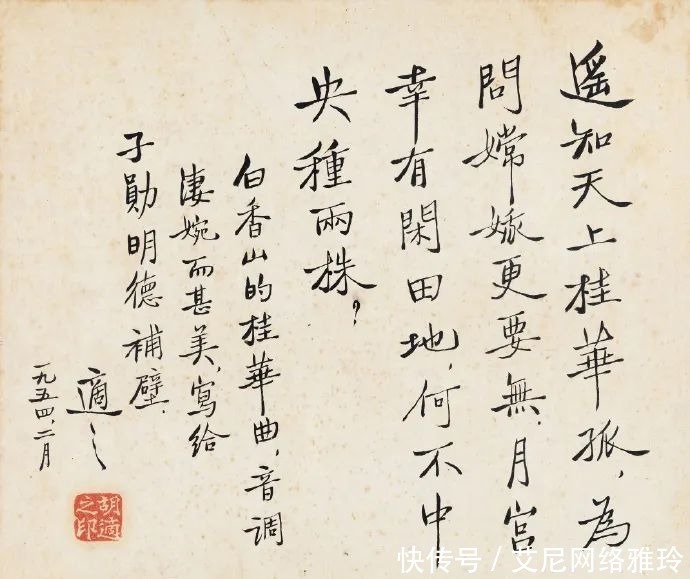 遥知天上桂華孤，為
問嫦娥更要無，月宮
幸有閑田地，何不中
央種兩株？
白香山的桂華曲，音调
淒婉而甚美，寫给
子勛明德補壁．
適之
一九五四，二月
胡適之印
快传号 / 艾尼网络雅玲